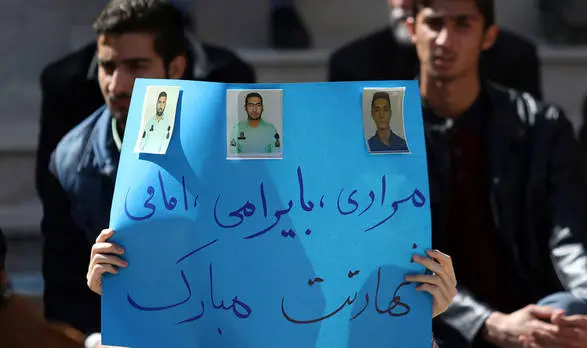 مرادی، بایرامی، امامی
شهادتت مبارک